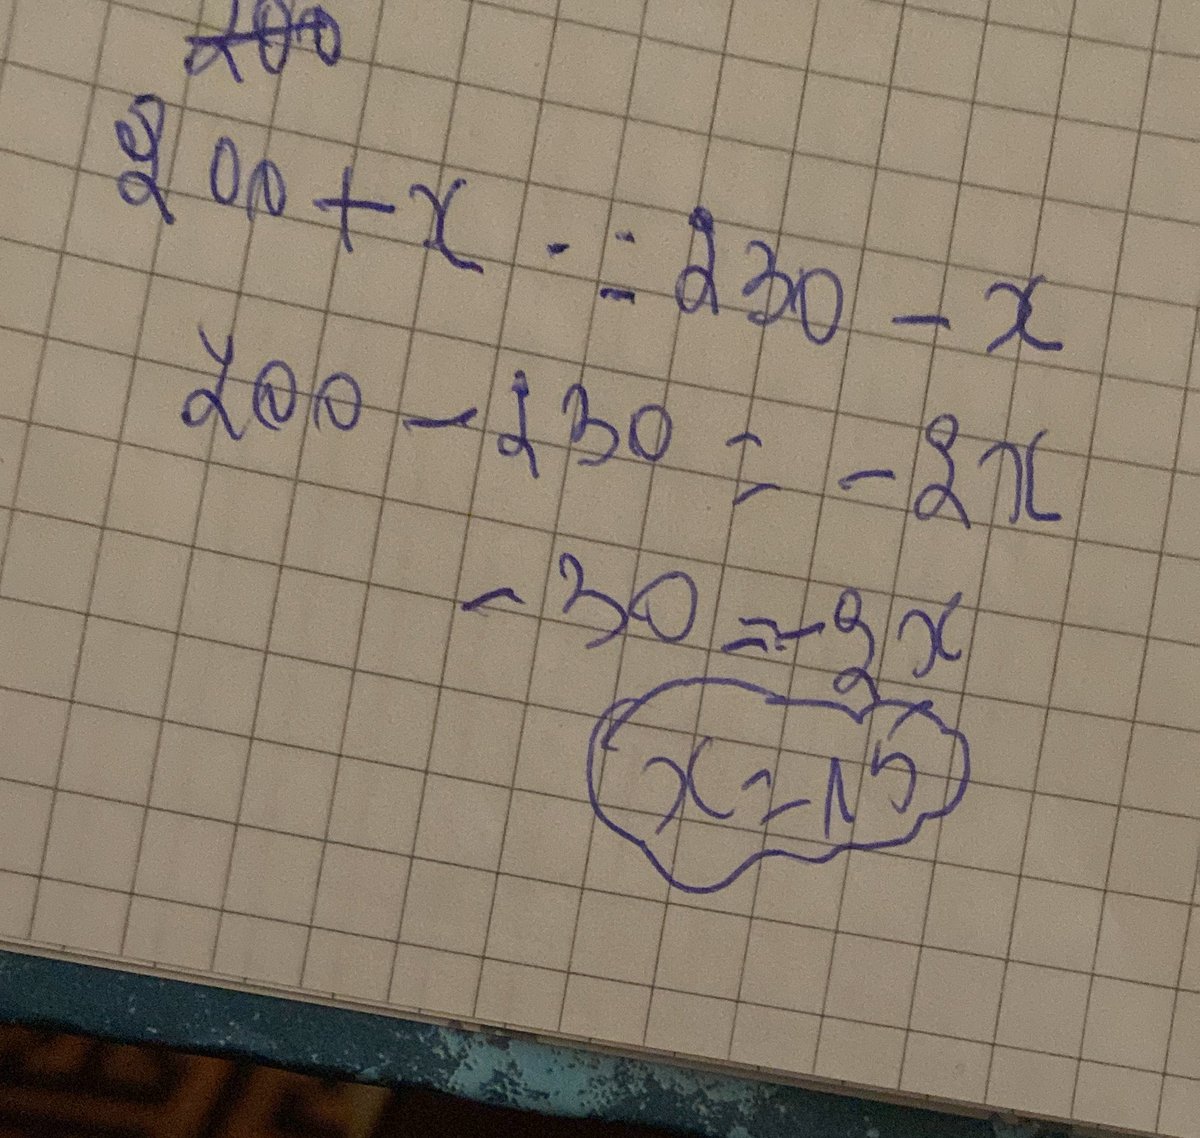 200
200 + x = 230 - x
200 - 230 = - 2x
- 30 = - 2x
x = 15